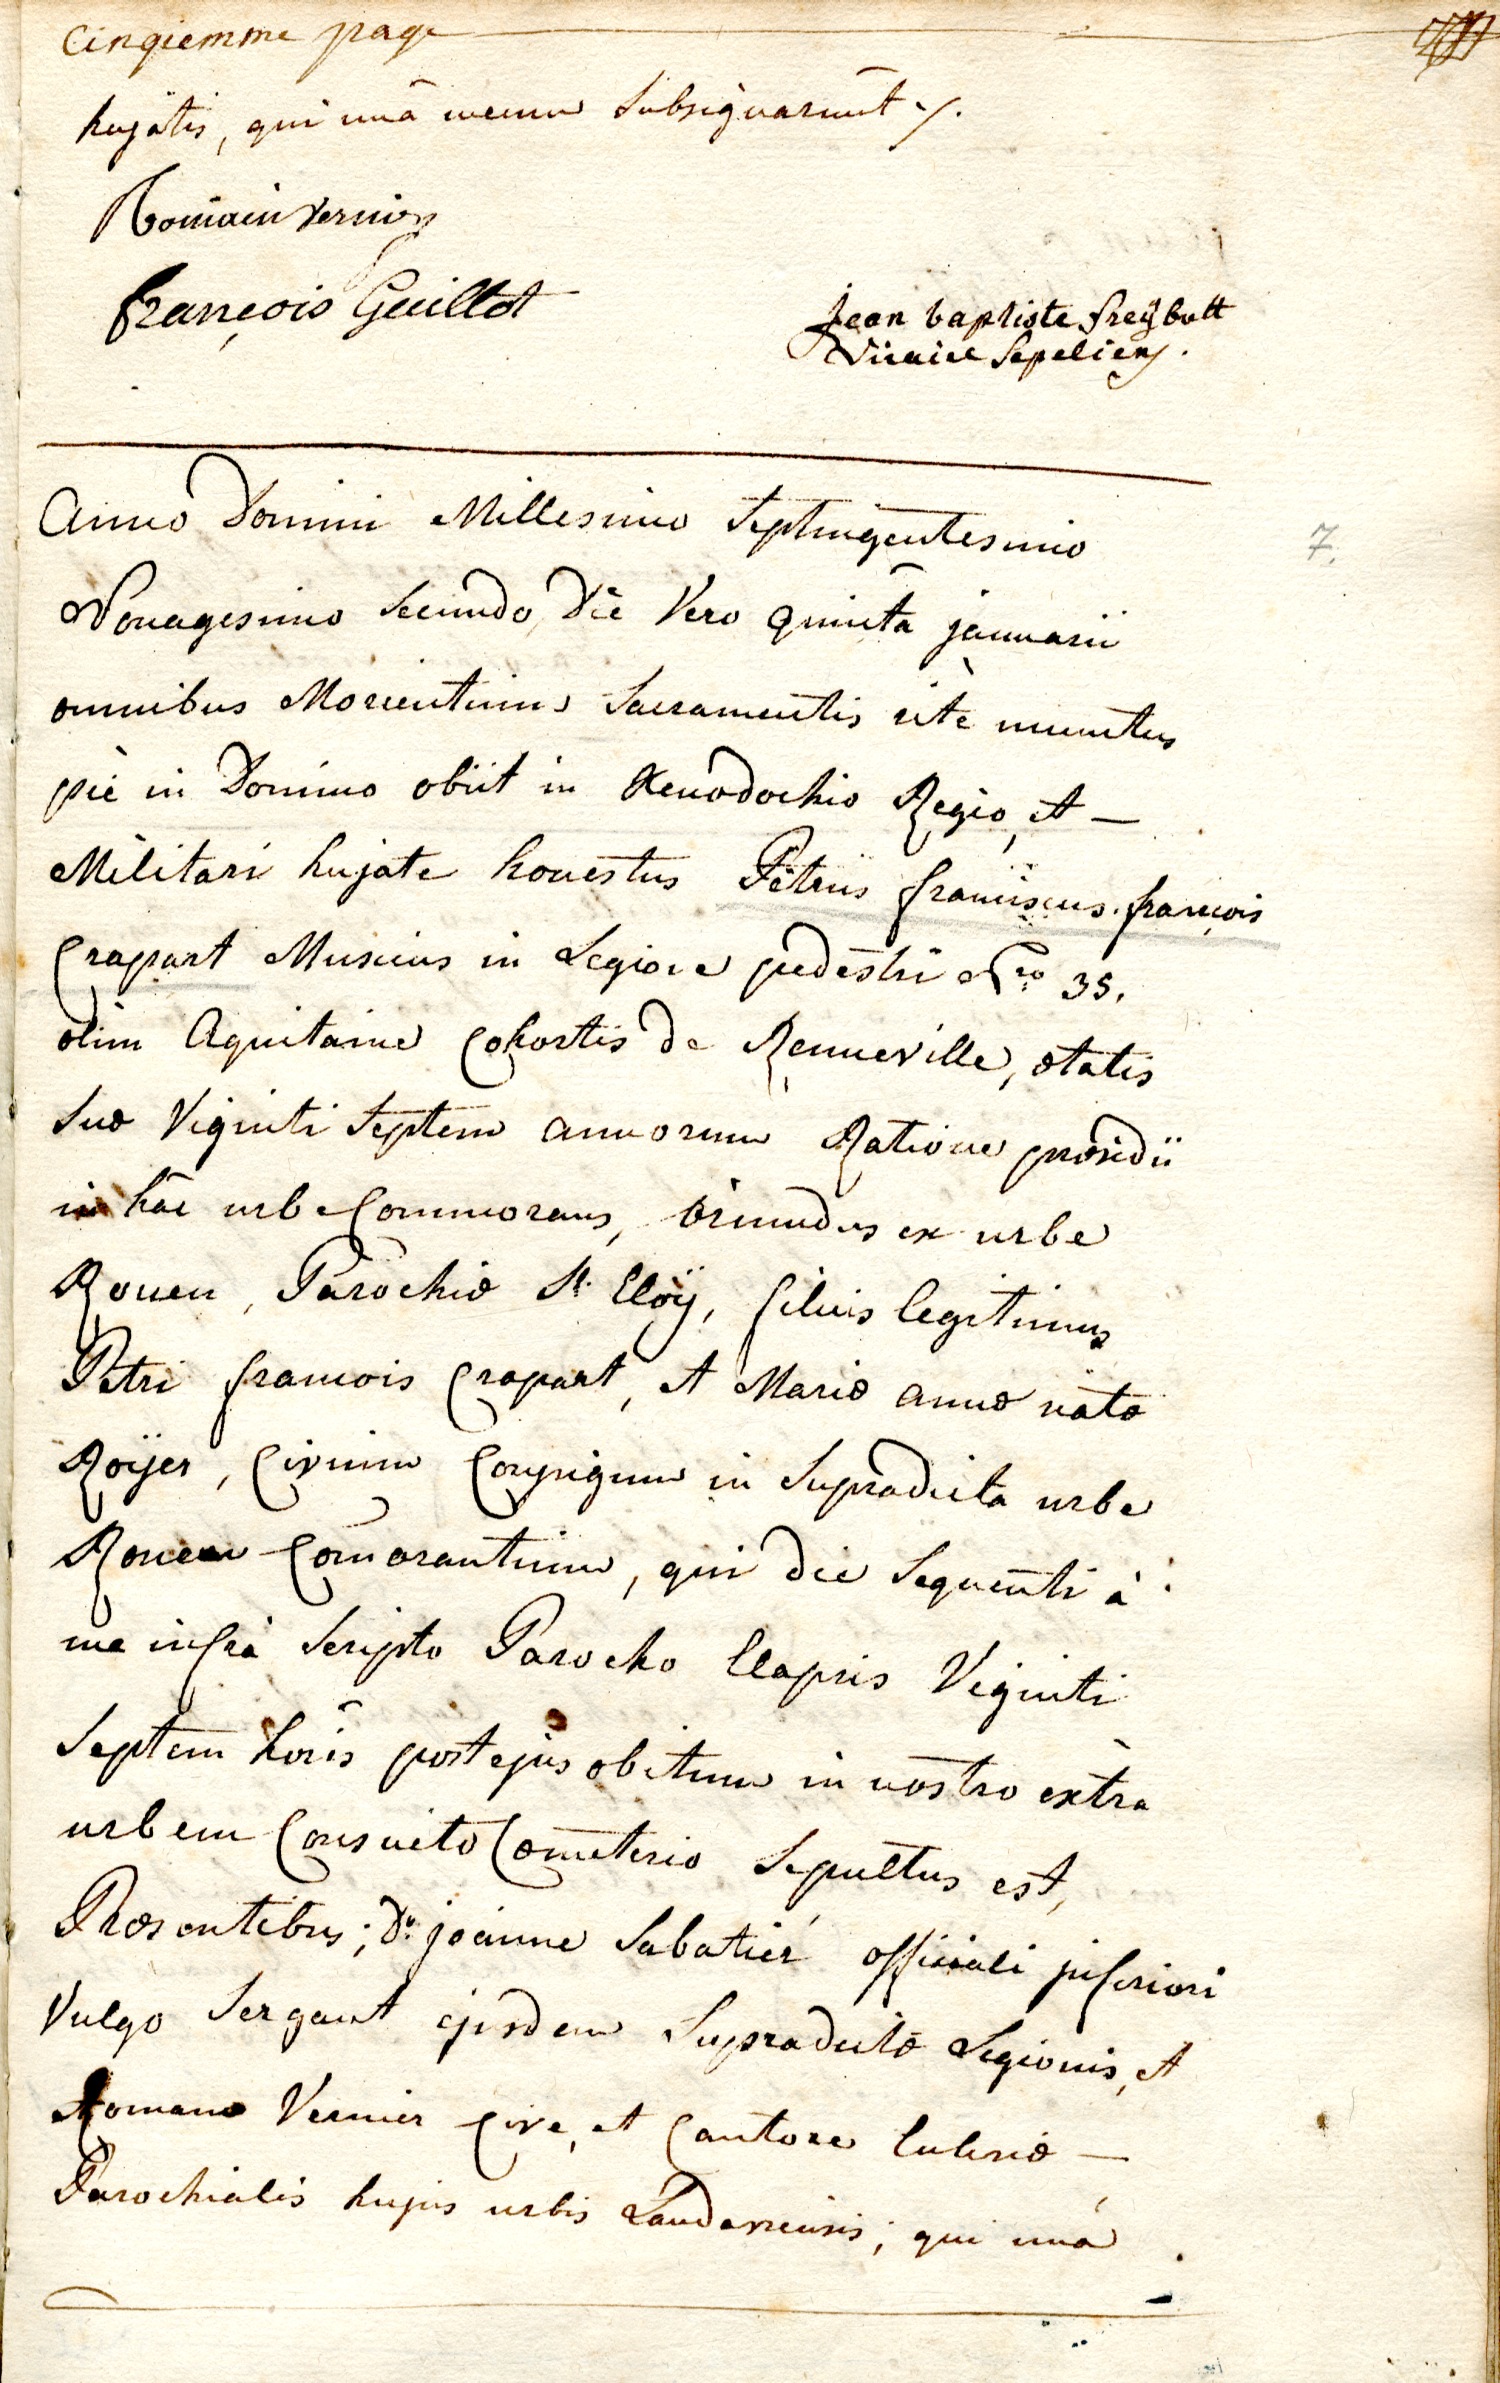 Cinqiemme page
hujatis, qui unâ mecum Subsignarunt ·/.
Romain Vernier
françois Guillot
jean baptiste freÿbutt
Vicaire Sepeliens.
Anno Domini Millesimo Septingentesimo
7.
Nonagesimo Secundo, Die Vero quinta januarii
omnibus Morientium Sacramentis ritè munitus
piè in Domino obiit in Xenodochio Regio, et —
Militari hujate honestus Petrus franciscus françois
Crapart Musicus in Legione pedestri Nro 35.
olim Aquitaine Cohortis de Renneville, ætatis
Suæ Viginti Septem annorum Ratione præsidii
in hâc urbe Commorans, Oriundus ex urbe
Rouen, Parochiæ St. Eloÿ, filius legitimus
Petri francois Crapart, et Mariæ annæ natæ
Roÿer, Civium Conjugum in Supradicta urbe
Rouen Comorantium, qui die Sequenti à
me infrà Scripto Parocho Elapsis Viginti
Septem horis post ejus obitum in nostro extra
urbem Consueto Cœmeterio Sepultus est,
Præsentibus; Do. joanne Sabatier officiali inferiori
Vulgo Sergant ejusdem Supradictæ Legionis, et
Romano Vernier Cive, et Cantore Eclesiæ —
Parochialis hujus urbis Landaviensis; qui unà